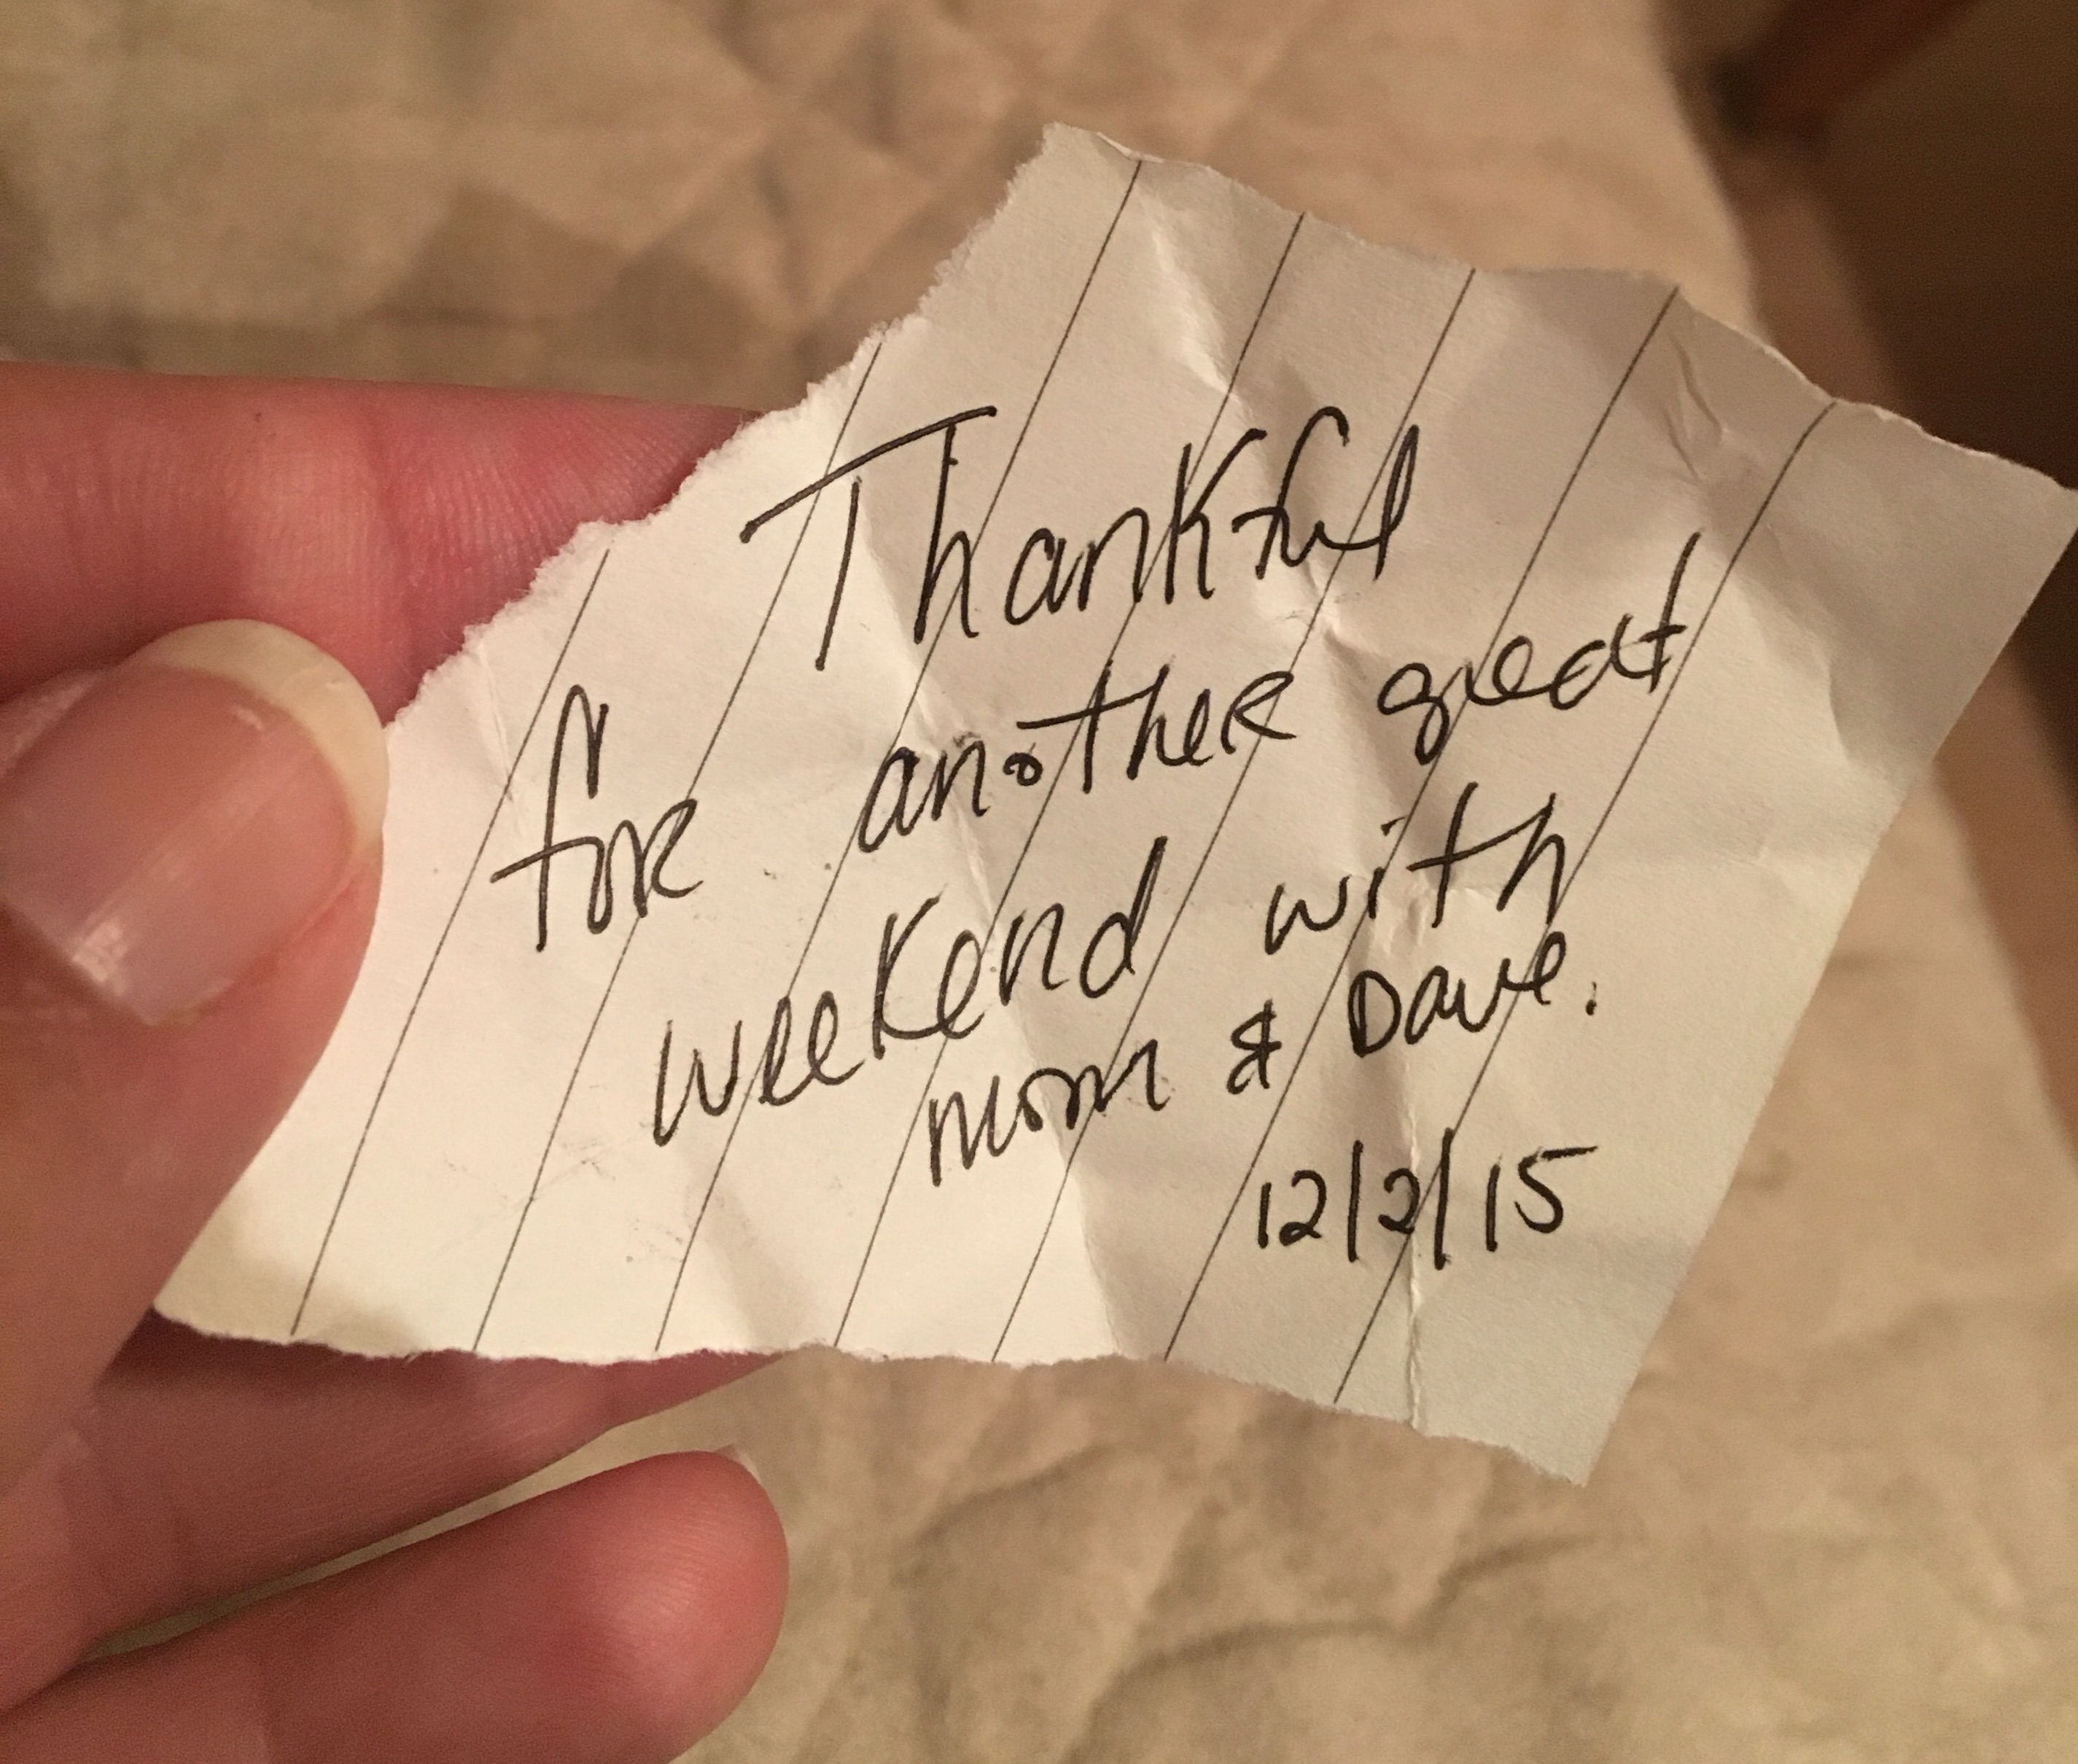 Thankful
for another great
weekend with
mom & Dave.
12/2/15